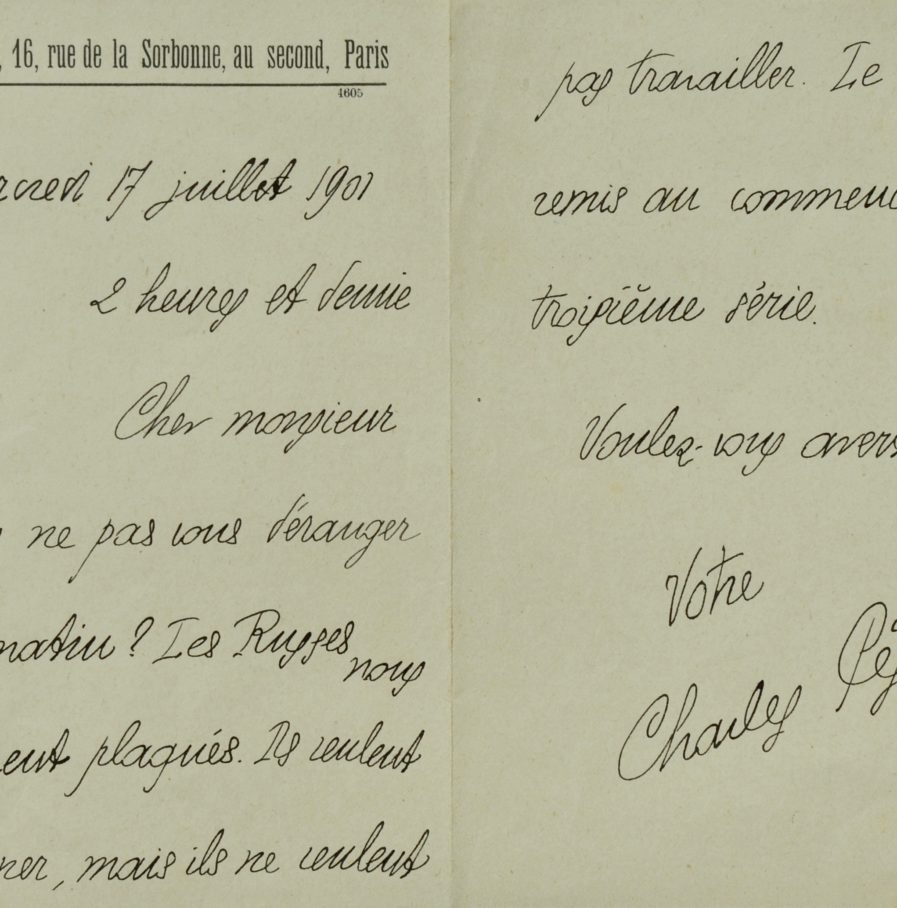 , 16, rue de la Sorbonne, au second, Paris
4605
rcredi 17 juillet 1901
2 heures et demie
Cher monsieur
ne pas vous déranger
matin ? Les Russes nous
ent plaqués. Ils veulent
ner, mais ils ne veulent
pas travailler. Le
remis au commen
troisième série.
Voulez-vous avers
Votre
Charles Pég